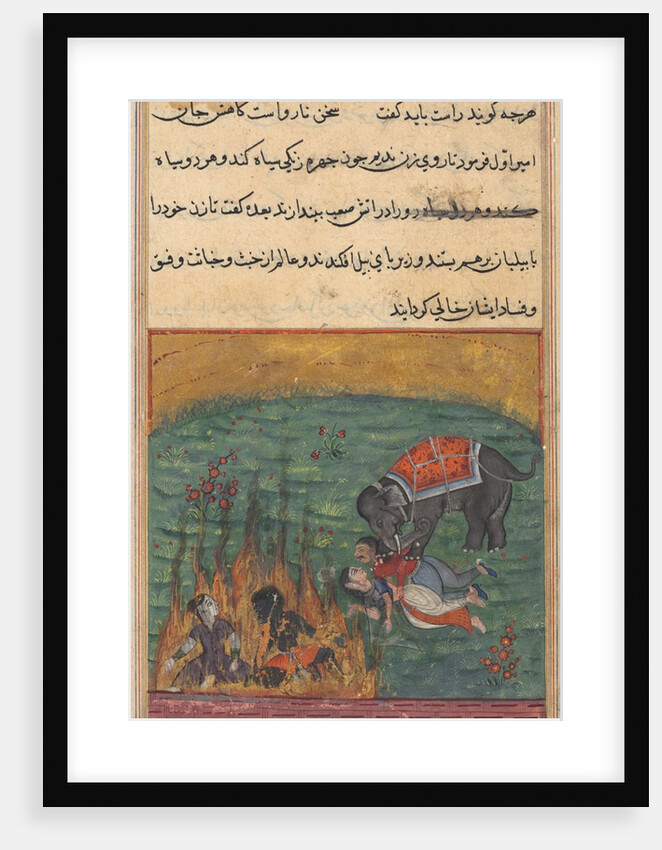 هرچه گویند راست باید گفت سخن ناروا است کاهش جان
امیر اول فرمود تا روی زن ندیم چون چهره زنگی سیاه کند و هر دو سیاه
کند و هر دو را در آتش صعب بیندازند بعده گفت تا زن خود را
با پیلبان برهم بستند و زیر پای پیل افکندند و عالم از خبث و خباثت و فسق
و فساد ایشان خالی گردانیدند